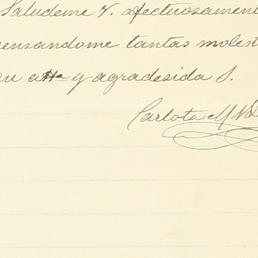 Saludeme V. afectuosamen
ensandome tantas molest
su atta y agradesida S.
Carlota M